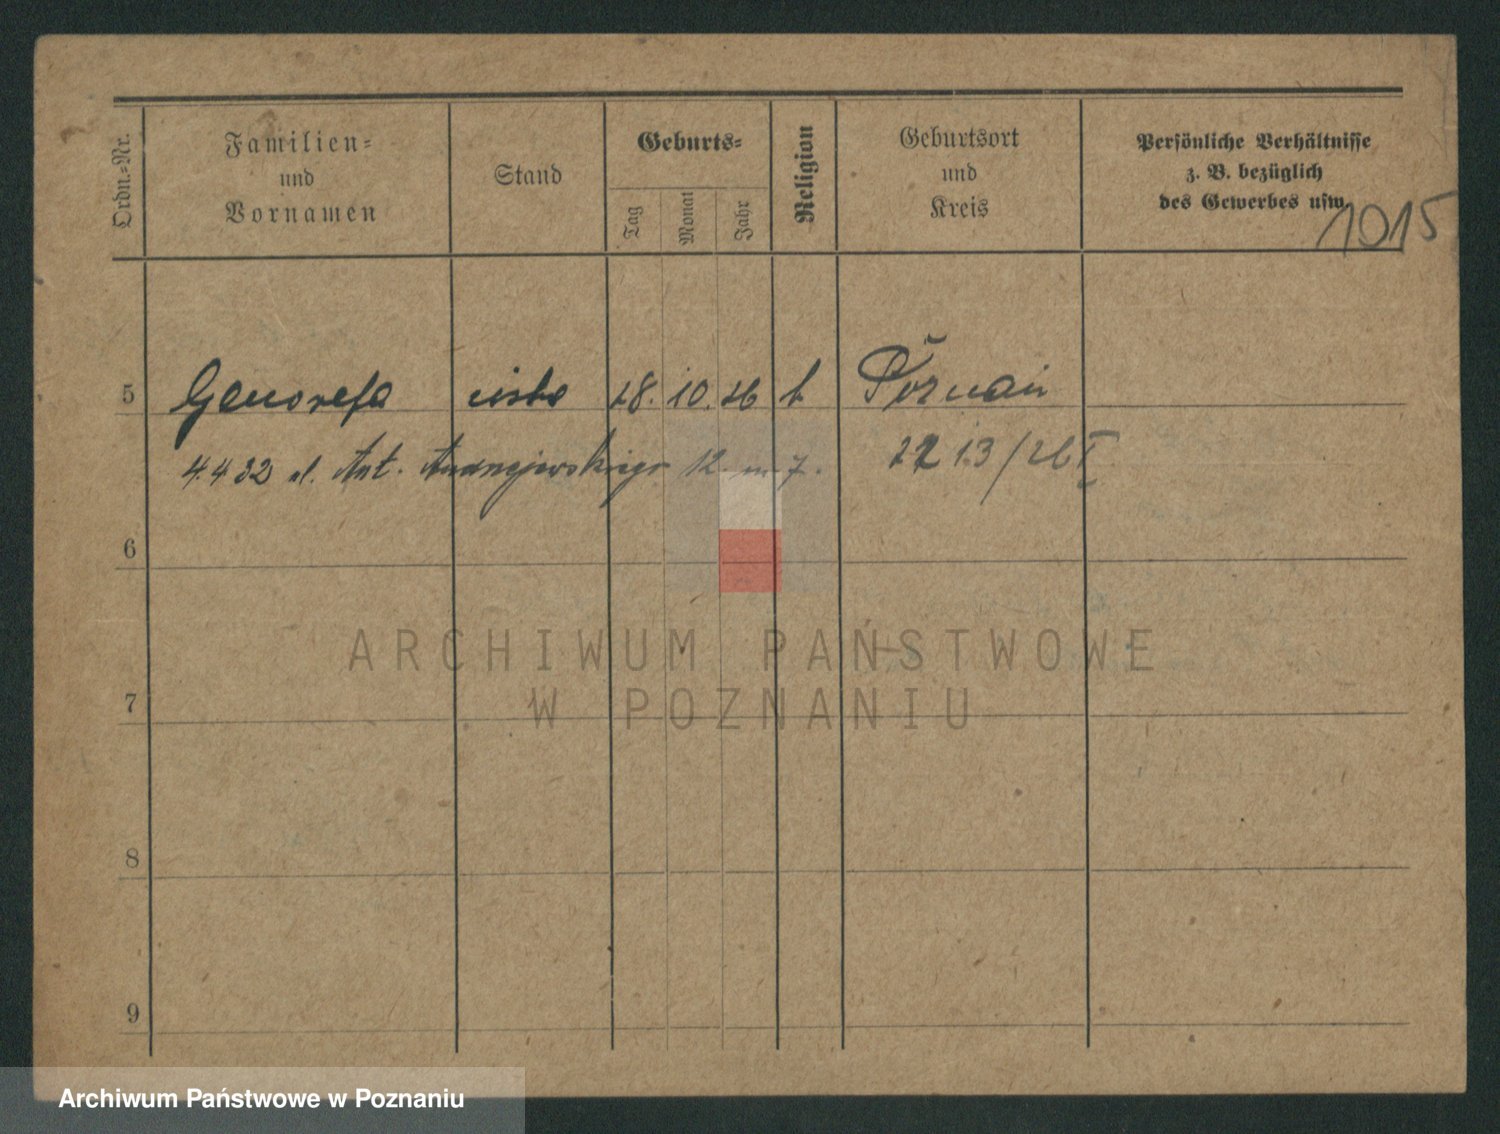 Ordn.-Nr.
Familien-
und
Vornamen
Stand
Geburts-
Tag
Monat
Jahr
Religion
Geburtsort
und
Kreis
Persönliche Verhältnisse
z. B. bezüglich
des Gewerbes usw.
1015
5 Genowefa 28. 10. 26 Poznań
4.4 32 ul. Ant. Andrzejewskiego 12 m 7.
6
7
8
9
ARCHIWUM PAŃSTWOWE
W POZNANIU
Archiwum Państwowe w Poznaniu